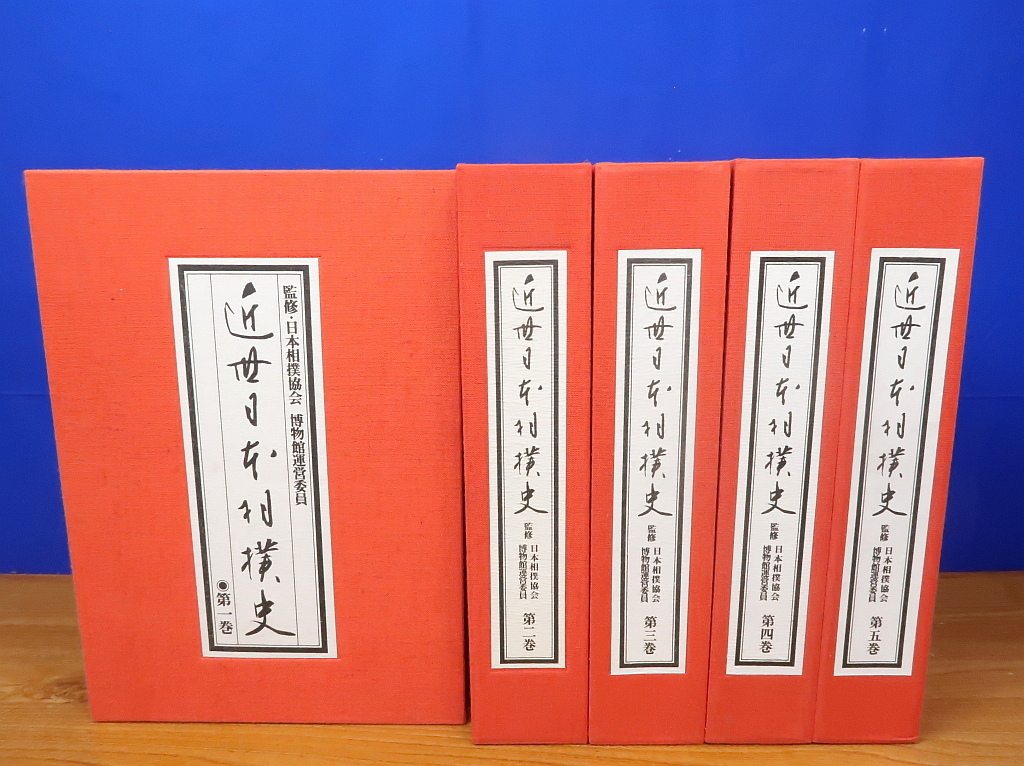 監修・日本相撲協会 博物館運営委員
近世日本相撲史
●第一巻
近世日本相撲史
監修
日本相撲協会
博物館運営委員
第二巻
近世日本相撲史
監修
日本相撲協会
博物館運営委員
第三巻
近世日本相撲史
監修
日本相撲協会
博物館運営委員
第四巻
近世日本相撲史
監修
日本相撲協会
博物館運営委員
第五巻